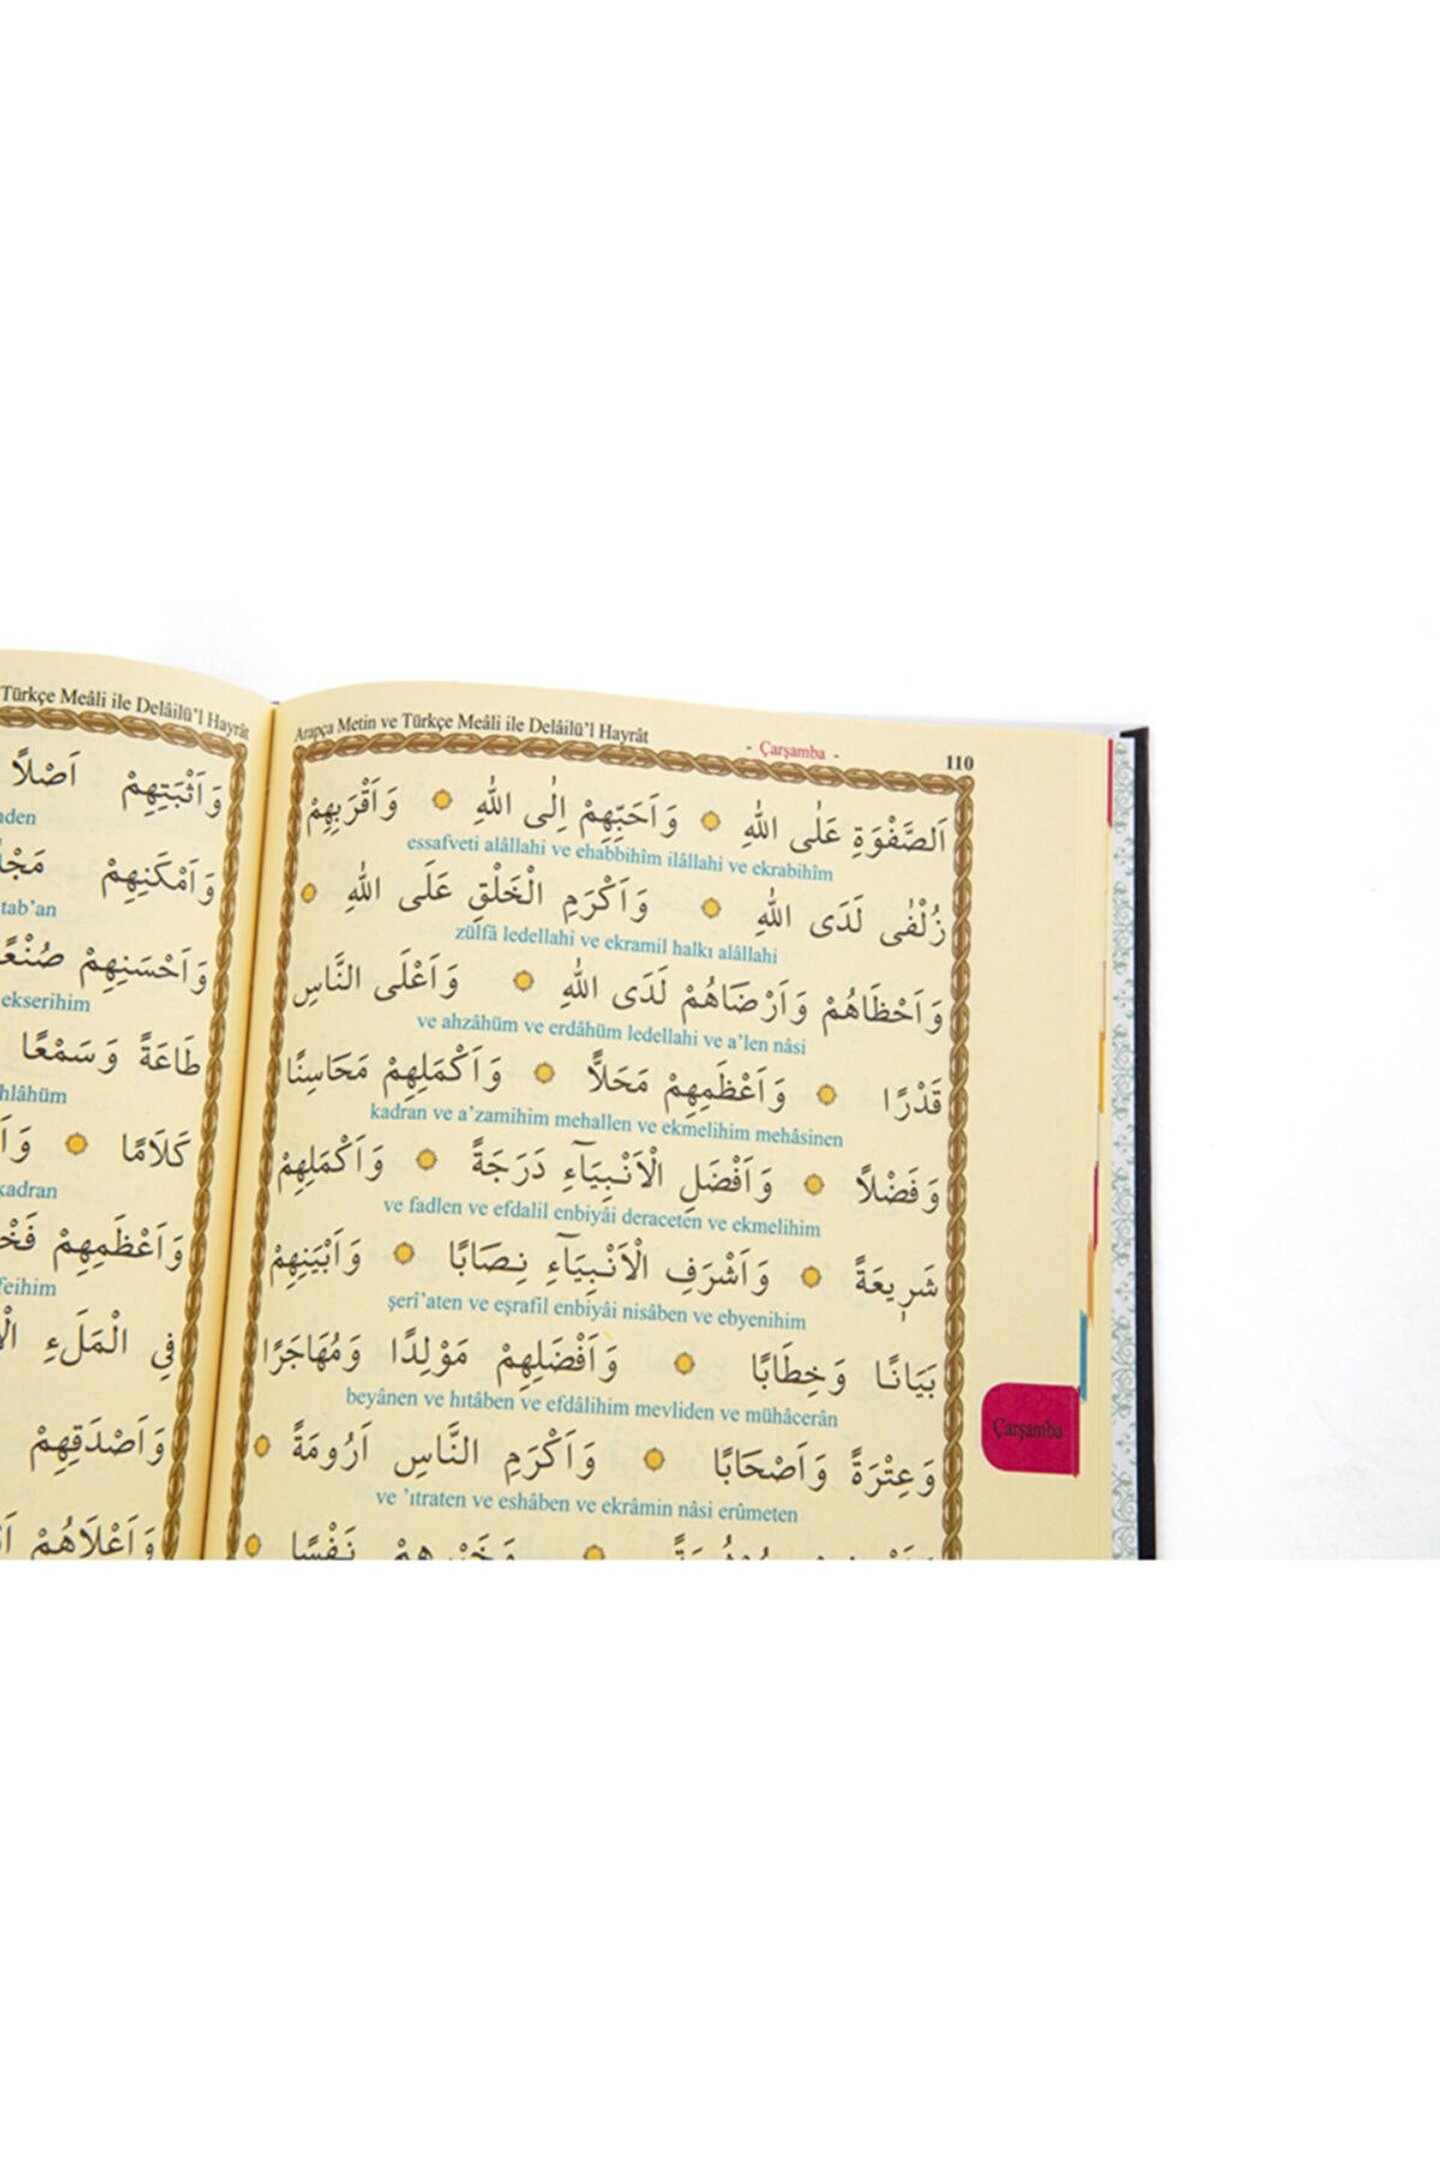 Türkçe Meâli ile Delâilü’l Hayrât
وَاَثْبَتِهِمْ اَصْلاً
وَاَمْكَنِهِمْ
tab’an
وَاَحْسَنِهِمْ صُنْعًا
ekserihim
طَاعَةً وَسَمْعًا
كَلَامًا
kadran
وَاَعْظَمِهِمْ
فِي الْمَلَءِ
وَاَصْدَقِهِمْ
وَاَعْلَاهُمْ
Arapça Metin ve Türkçe Meâli ile Delâilü’l Hayrât
- Çarşamba -
110
اَلصَّفْوَةِ عَلٰى اللّٰهِ وَاَحَبِّهِمْ اِلٰى اللّٰهِ وَاَقْرَبِهِمْ
essafveti alâllahi ve ehabbihîm ilâllahi ve ekrabihîm
زُلْفٰى لَدَى اللّٰهِ وَاَكْرَمِ الْخَلْقِ عَلَى اللّٰهِ
zülfâ ledellahi ve ekramil halkı alâllahi
وَاَحْظَاهُمْ وَاَرْضَاهُمْ لَدَى اللّٰهِ وَاَعْلَى النَّاسِ
ve ahzâhüm ve erdâhüm ledellahi ve a’len nâsi
قَدْرًا وَاَعْظَمِهِمْ مَحَلاًّ وَاَكْمَلِهِمْ مَحَاسِنًا
kadran ve a’zamihim mehallen ve ekmelihim mehâsinen
وَفَضْلاً وَاَفْضَلِ الْاَنْبِيَآءِ دَرَجَةً وَاَكْمَلِهِمْ
ve fadlen ve efdalil enbiyâi deraceten ve ekmelihim
شَرٖيعَةً وَاَشْرَفِ الْاَنْبِيَآءِ نِصَابًا وَاَبْيَنِهِمْ
şerî’aten ve eşrafil enbiyâi nisâben ve ebyenihim
بَيَانًا وَخِطَابًا وَاَفْضَلِهِمْ مَوْلِدًا وَمُهَاجَرًا
beyânen ve hıtâben ve efdâlihim mevliden ve mühâcerân
وَعِتْرَةً وَاَصْحَابًا وَاَكْرَمِ النَّاسِ اَرُومَةً
ve ’ıtraten ve eshâben ve ekrâmin nâsi erûmeten
نَفْسًا
Çarşamba